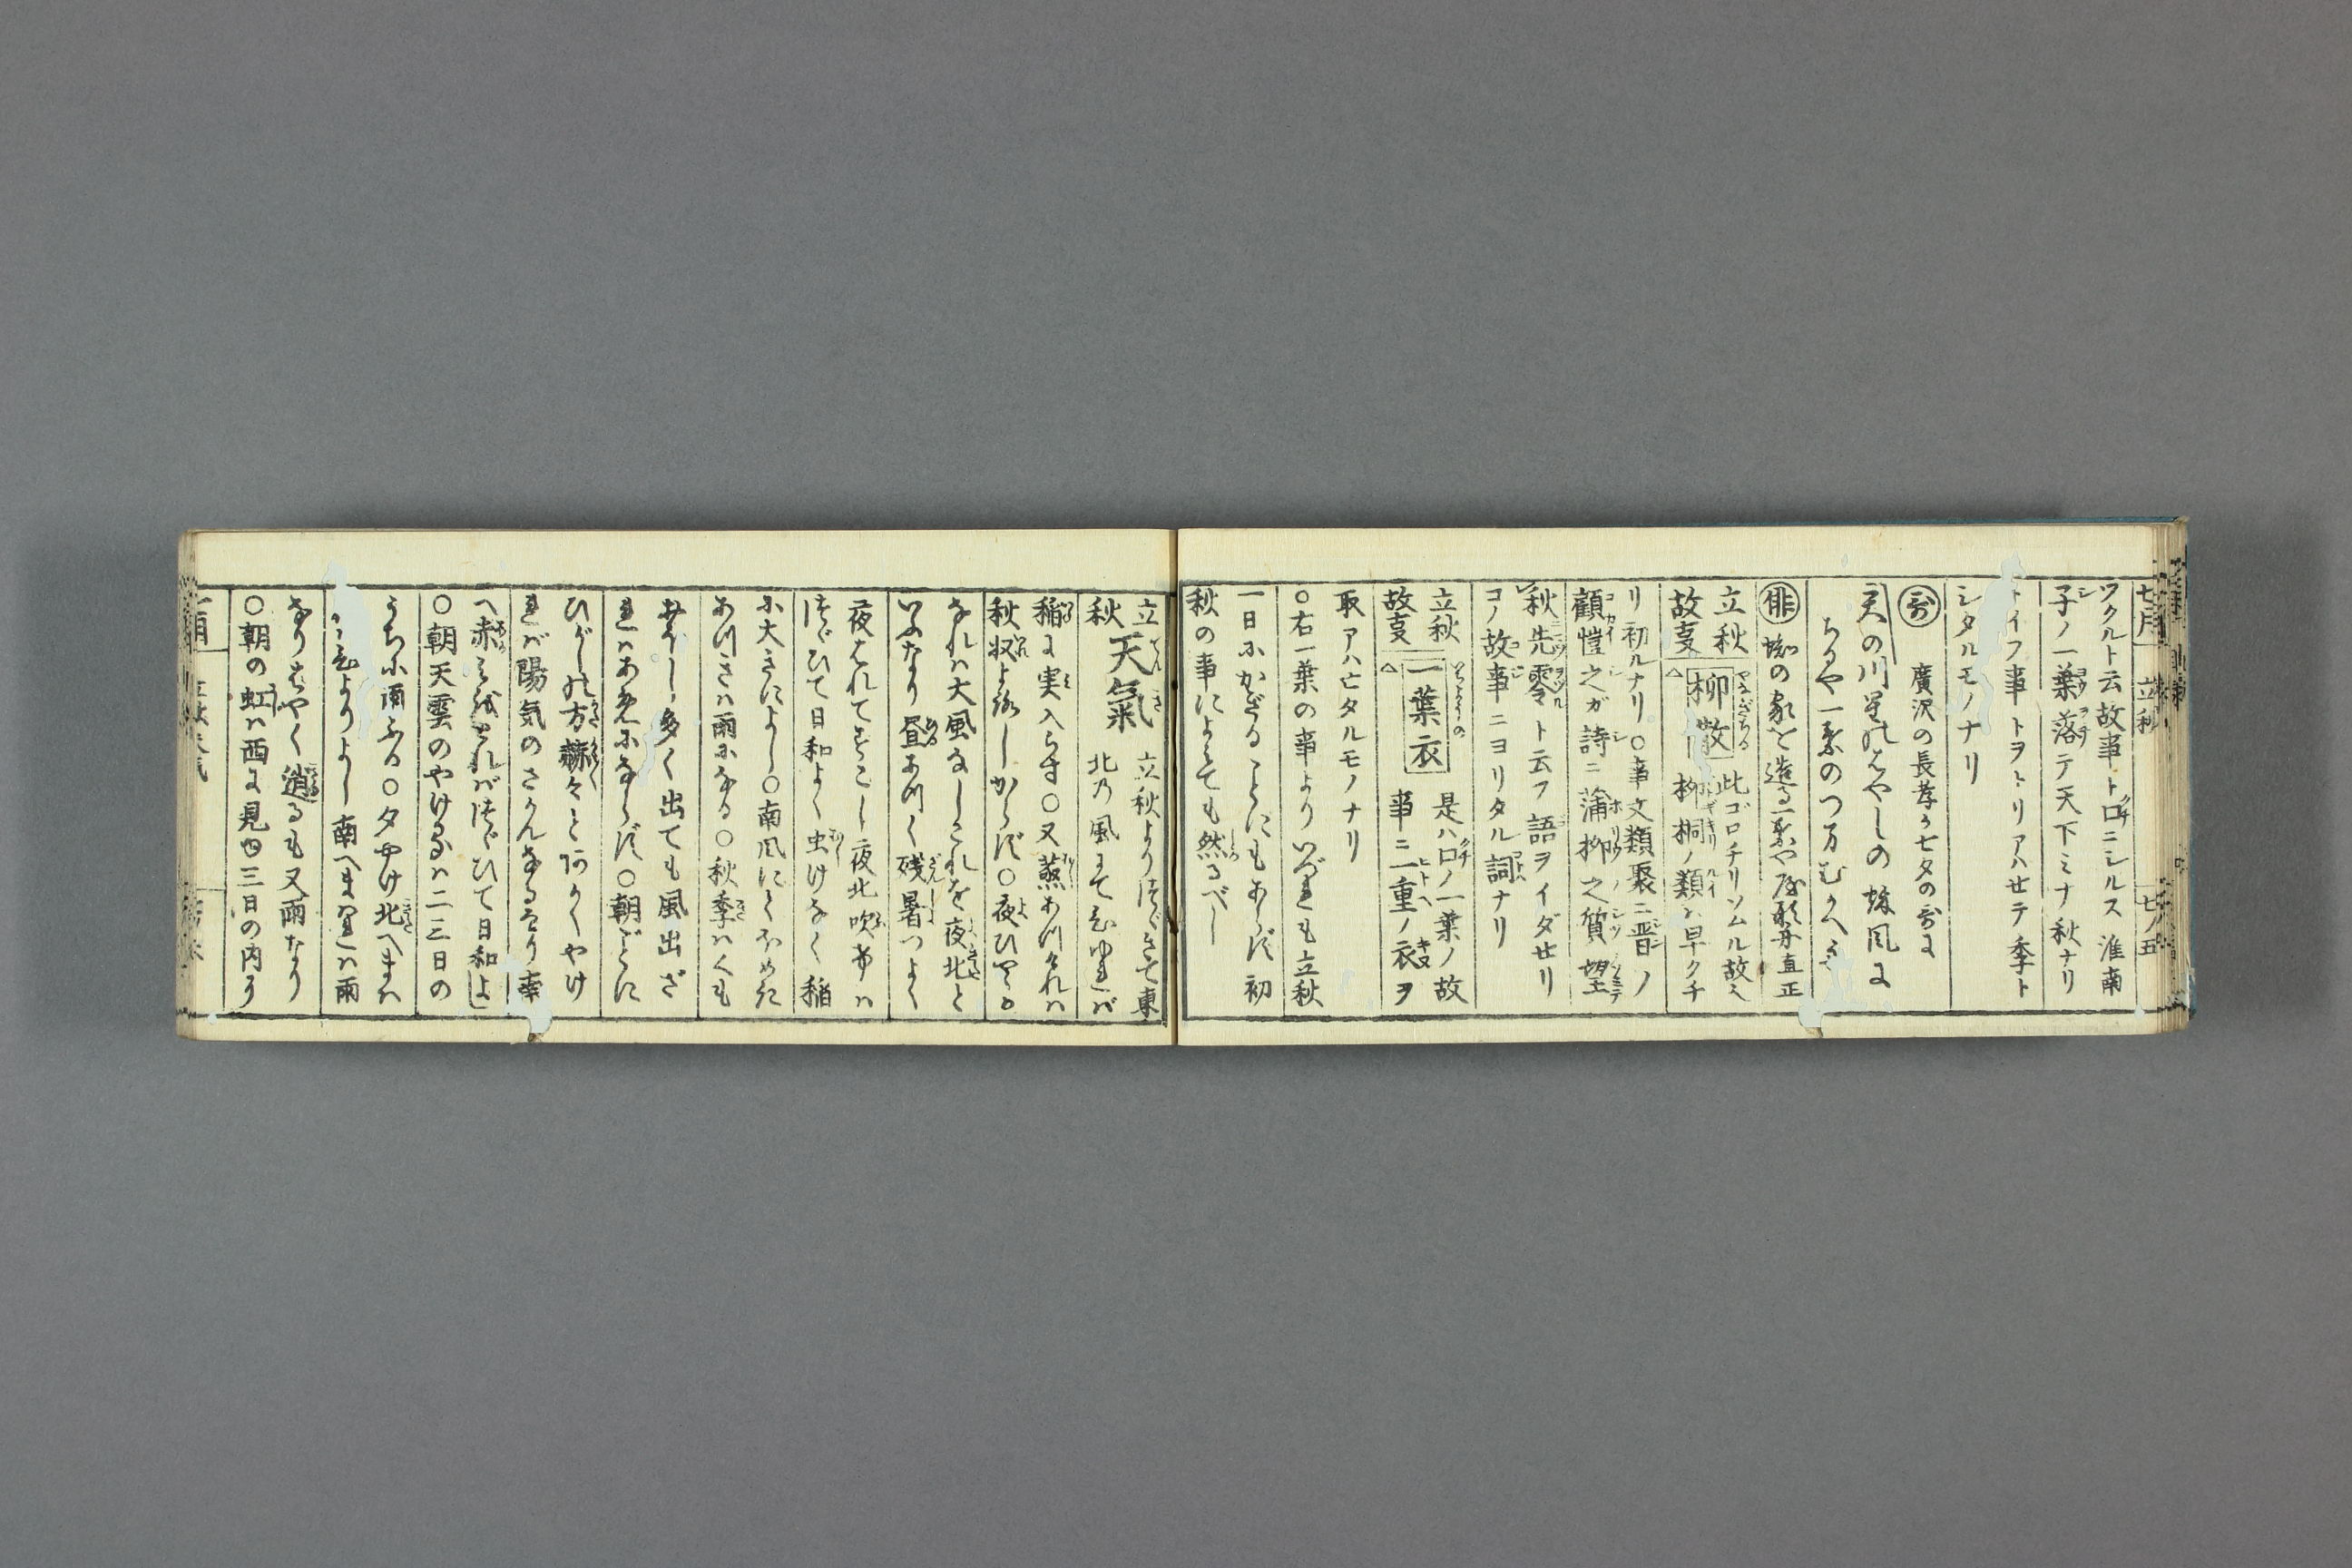 七月
立秋
七ノ五
ツクルト云故事ト口ニシルス 淮南
子ノ一葉落テ天下ミナ秋ナリ
トイフ事トヲトリアハセテ季ト
シタルモノナリ
哥 廣沢の長孝か七夕の哥に
天の川星のはやしの 風に
ちるや一葉のつま
俳 蜘の家を造る一葉や 直正
立秋
故叓
柳散
やなぎちる
此ゴロチリソムル故ヘ
柳桐ノ類ハ早クチ
リ初ルナリ○事文類聚ニ晋ノ
顧愷之ガ詩ニ蒲柳之質望
秋先零ト云フ語ヲイダせリ
コノ故事ニヨリタル詞ナリ
立秋
故叓
一葉衣
いちようの
是ハ口ノ一葉ノ故
事ニ一重ノ衣ヲ
取アハせタルモノナリ
○右一葉の事よりいづれも立秋
一日にかぎることにもあらず初
秋の事によみても然るべし
立秋
天氣
てんき
立秋よりつゞきて東
北乃風にて ば
稲に実入らず○又蒸あつければ
秋収よろしからず○夜ひやゝか
なれハ大風なしこれを夜北と
いふなり昼あつく残暑つよく
夜はれてすこし夜北吹 ハ
つゞひて日和よく虫けなく稲
に大きによし○南風にて
あつきハ雨になる○秋季ハくも
多く出ても風出ざ
れハあめにならず○朝ごとに
ひがしの方赫々と くやけ
れば陽気のさかんなるなり
へ赤 ればつゞひて日和よし
○朝天雲のやけるハ二三日の
うちに雨ふる○夕やけ北へまハ
よりよし南へまわれハ雨
なりはやく消るも又雨なり
○朝の虹ハ西に見ゆ三日の内